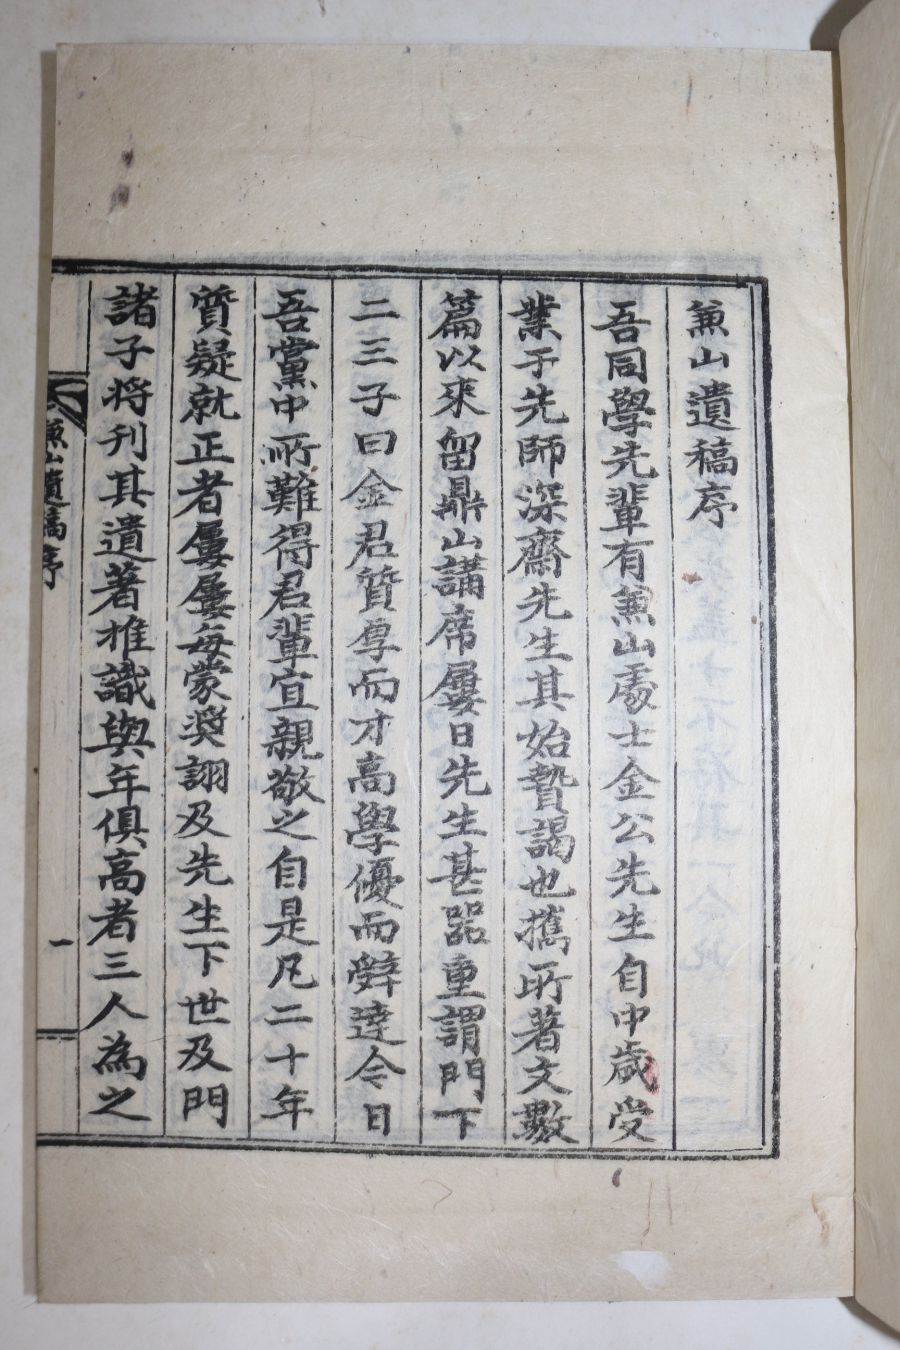 兼山遺稿序
吾同學先輩有兼山處士金公先生自中歲受
業于先師深齋先生其始贄謁也攜所著文數
篇以來留鼎山講席屢日先生甚器重謂門下
二三子曰金君質厚而才高學優而辭達今日
吾黨中所難得君輩宜親敬之自是凡二十年
質疑就正者屢屢每蒙奬詡及先生下世及門
諸子将刊其遺著推識與年俱高者三人為之
兼山遺稿序
一